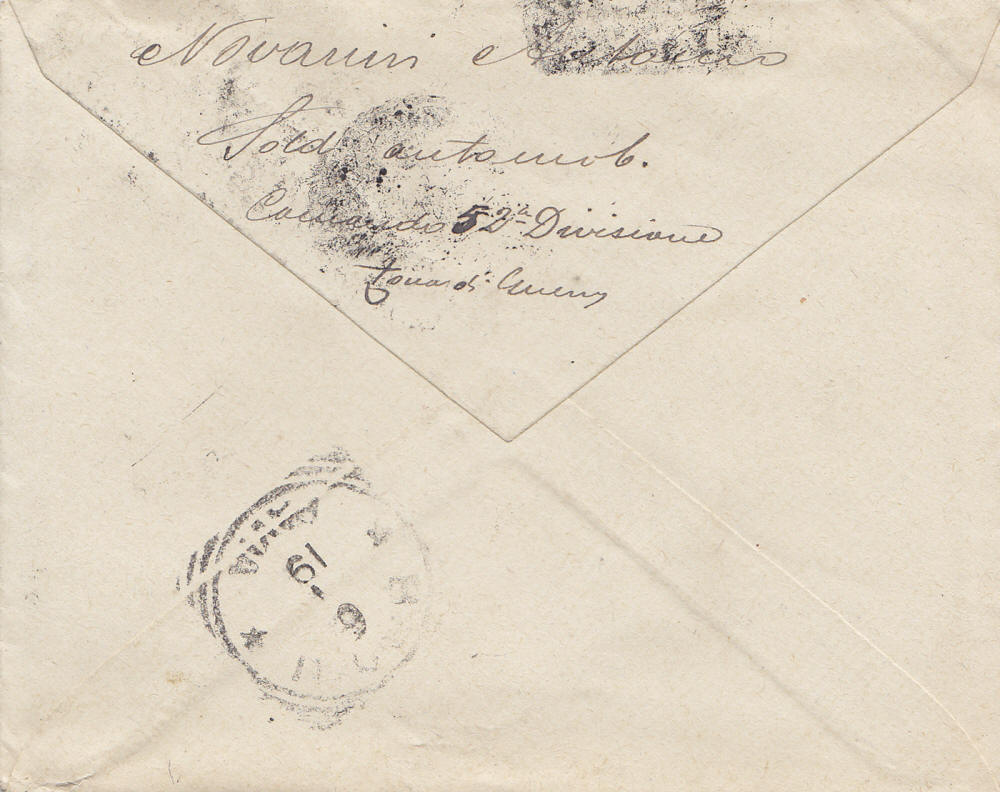 Novarini Antonio
Sold automob.
Comando 52a Divisione
Guerra
19 - 6